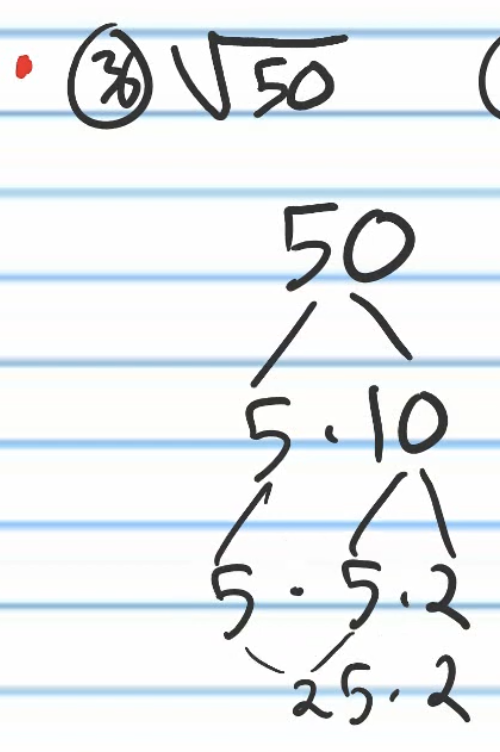 36 √50
50
5 · 10
5 · 5 · 2
25 · 2